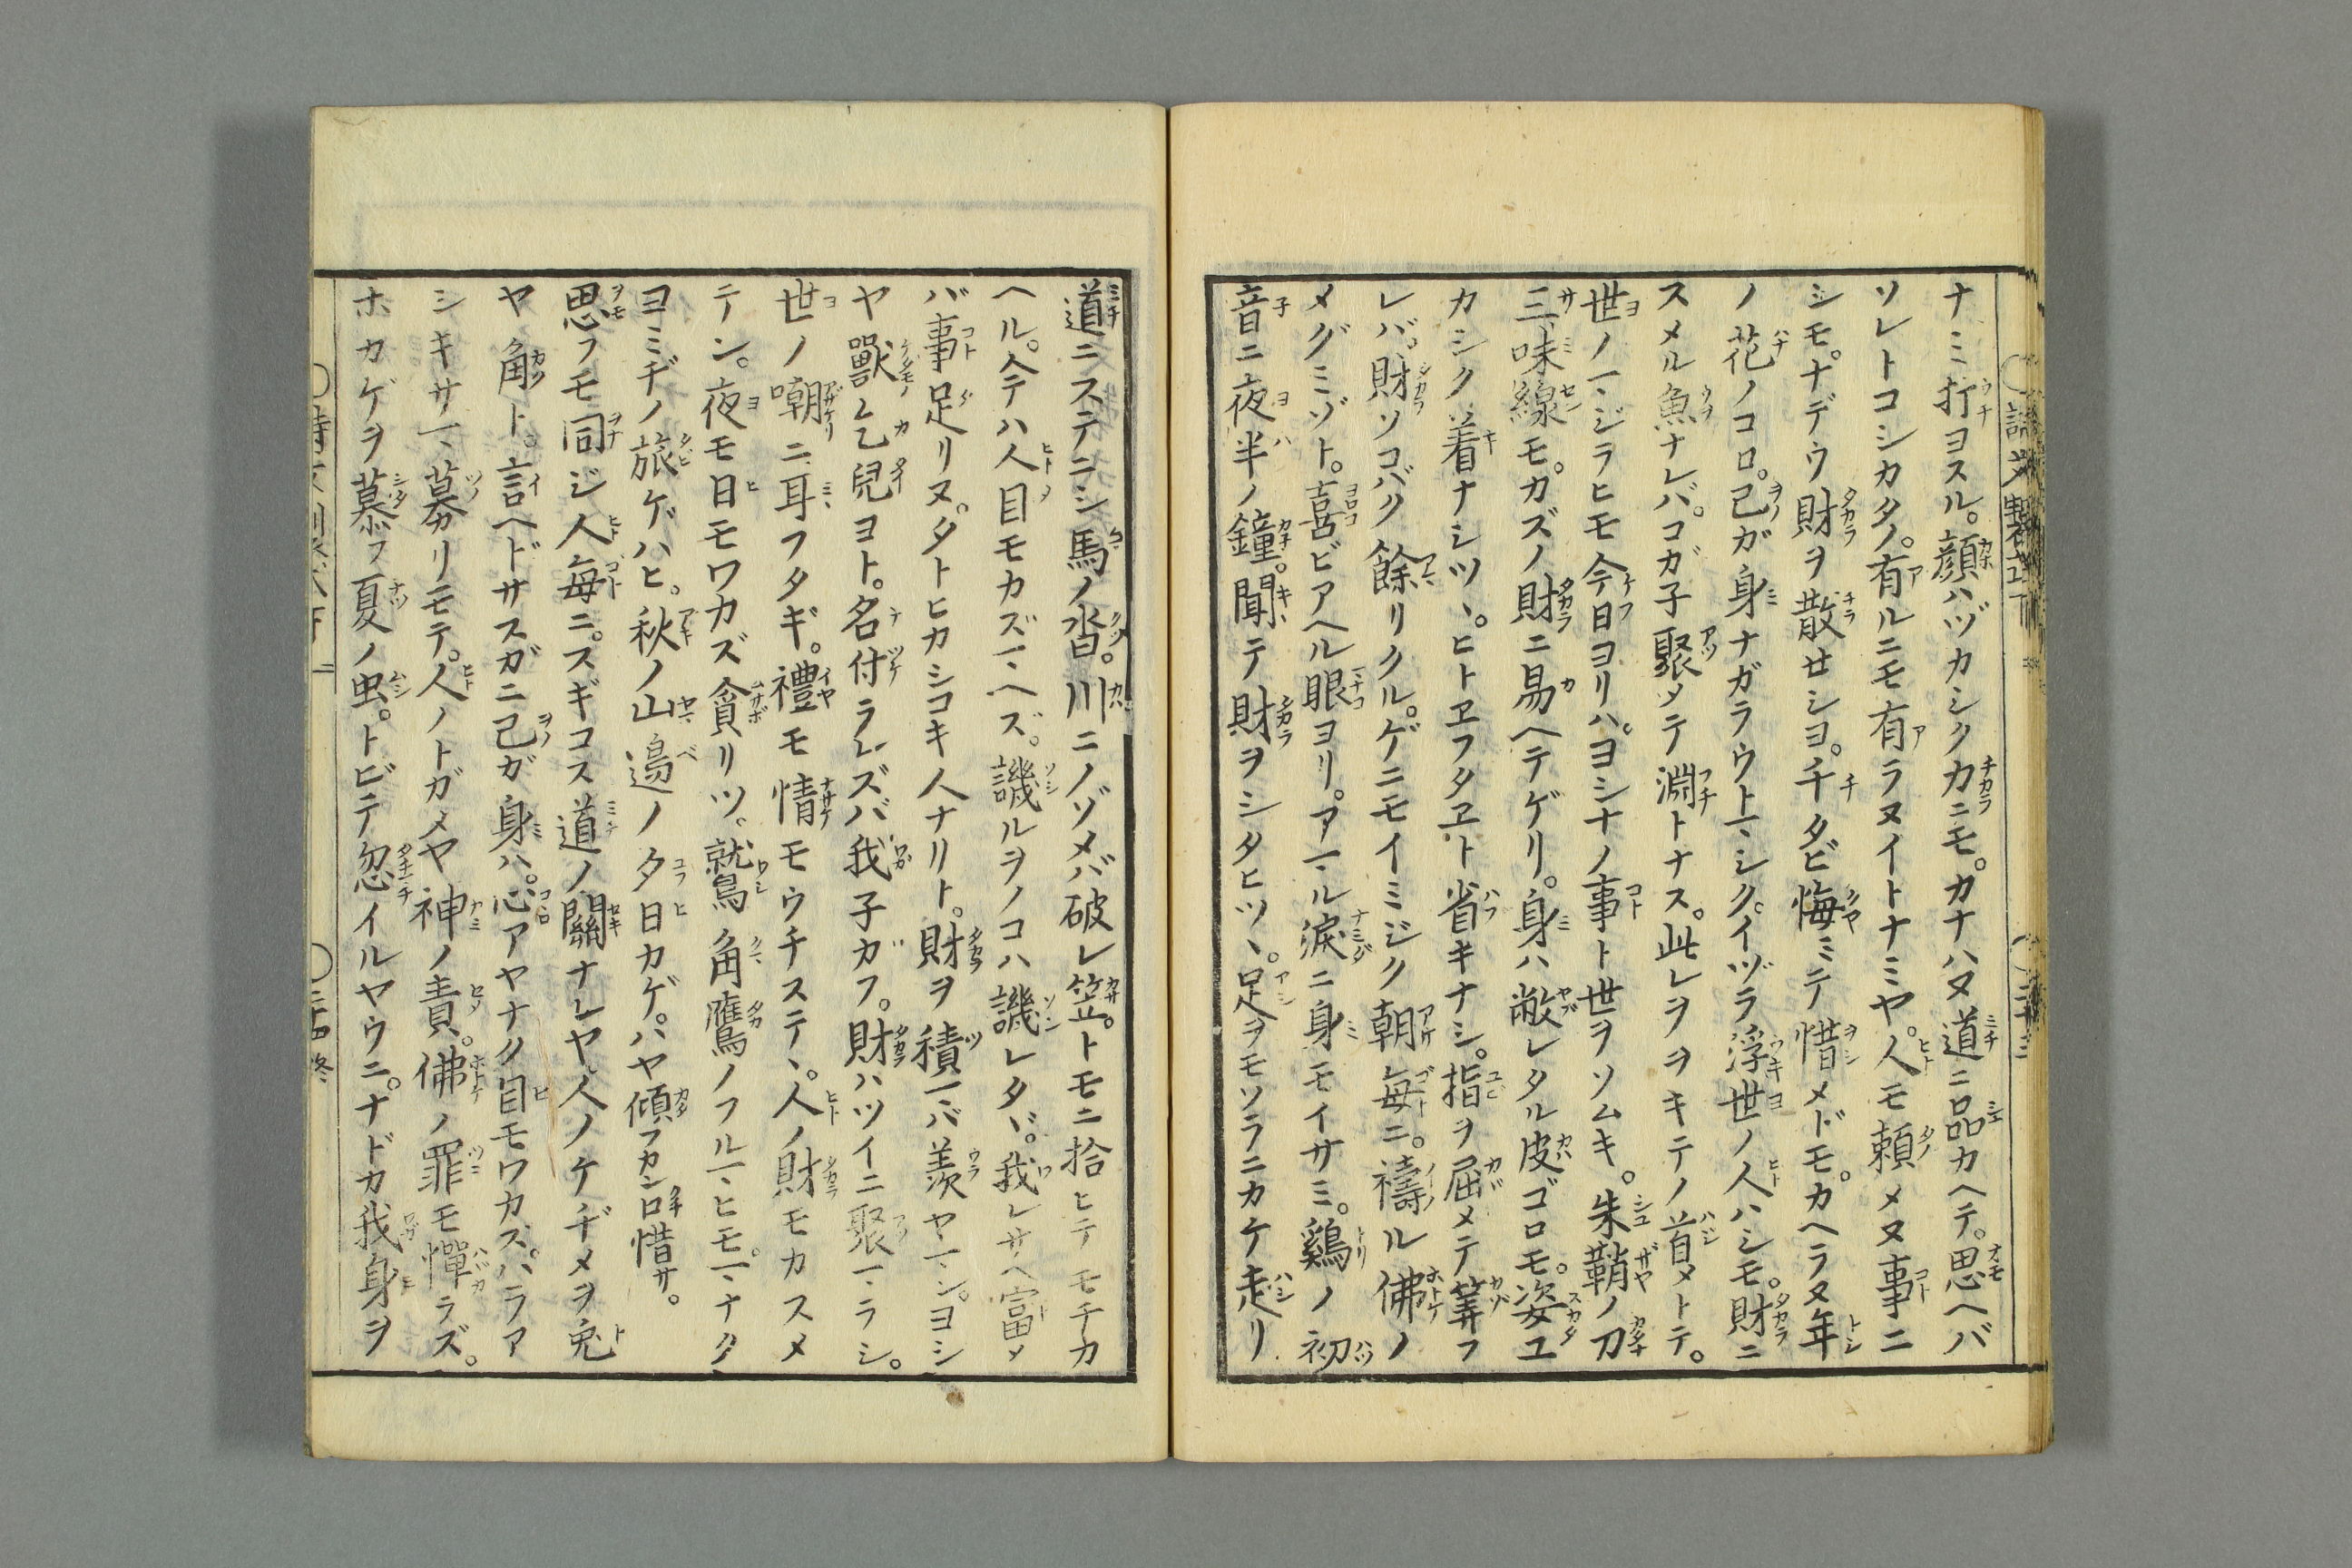 ナミ打ヨスル。顔ハヅカシクカニモ。カナハヌ道ニ品カヘテ。思ヘバ
ソレトコシカタノ。有ルニモ有ラヌイトナミヤ。人モ頼メヌ事ニ
シモ。ナデウ財ヲ散せシヨ。千タビ悔ミテ惜メドモ。カヘラヌ年
ノ花ノコロ。己ガ身ナガラウトマシク。イヅラ浮世ノ人ハシモ。財ニ
スメル魚ナレバ。コガ子聚メテ淵トナス。此レヲヲキテノ首メトテ。
世ノマジラヒモ今日ヨリハ。ヨシナノ事ト世ヲソムキ。朱鞘ノ刀
三味線モ。カズノ財ニ易ヘテゲリ。身ハ敝レタル皮ゴロモ。姿ユ
カシク着ナシツヽ。ヒトヱフタヱト省キナシ。指ヲ屈メテ筭フ
レバ。財ソコバク餘リクル。ゲニモイミジク朝毎ニ。禱ル佛ノ
メグミゾト。喜ビアヘル眼ヨリ。アマル淚ニ身モイサミ。鷄ノ初
音ニ夜半ノ鐘。聞テ財ヲシタヒツヽ。足ヲモソラニカケ走リ
道ニステニシ馬ノ沓。川ニノゾメバ破レ笠。トモニ拾ヒテモチカ
ヘル。今テハ人目モカズマヘズ。譏ルヲノコハ譏レタヾ。我レサヘ富メ
バ事足リヌ。タトヒカシコキ人ナリト。財ヲ積マバ羨ヤマン。ヨシ
ヤ獸乞兒ヨト。名付ラレズバ我子ガフ。財ハツイニ聚マラシ。
世ノ嘲ニ耳フタギ。禮モ情モウチステヽ。人ノ財モカスメ
テン。夜モ日モワカズ貪リツ。鷲角鷹ノフルマヒモ。マナク
ヨミヂノ旅ゲハヒ。秋ノ山邉ノ夕日カゲ。ハヤ傾フカンロ惜サ。
思フモ同ジ人毎ニ。スギコス道ノ關ナレヤ。人ノケヂメヲ兎
ヤ角ト言ヘドサスガニ己ガ身ハ。心アヤナク目モワカズ。ハラア
シキサマ募リモテ。人ノトガメヤ神ノ責。佛ノ罪モ憚ラズ。
ホカゲヲ慕フ夏ノ虫。トビテ忽イルヤウニ。ナドカ我身ヲ